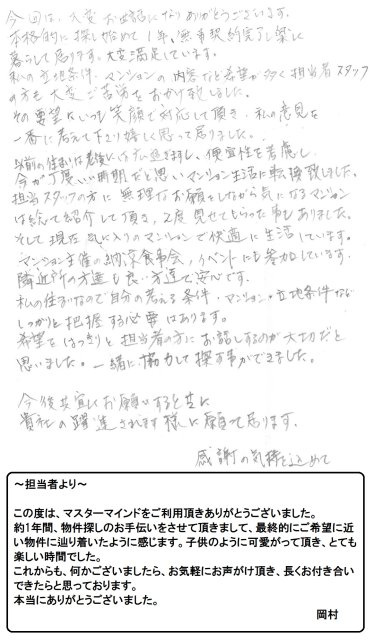 今回は、大変お世話になりありがとうございます。
本格的に探し始めて1年。無事契約完了し楽に
暮らして居ります。大変満足しています。
私の立地条件、マンションの内容など希望が多く担当者スタッフ
の方も大変ご苦労をおかけ致しました。
その要望にいつも笑顔で対応して頂き、私の意見を
一番に考えて下さり嬉しく思って居りました。
以前の住まいは老後には広過ぎますし、便宜性を考慮し
今が丁度いい時期だと思いマンション生活に転換致しました。
担当スタッフの方に無理なお願いしながら気になるマンション
は総て紹介して頂き、2度見せてもらった事もありました。
そして現在気に入りのマンションで快適に生活しています。
マンション主催の納涼食事会、イベントにも参加しています。
隣近所の方達も良い方達で安心です。
私の住まいなので自分の考える条件・マンション・立地条件など
しっかりと把握する必要はあります。
希望をはっきりと担当者の方にお話しするのが大切だと
思いました。一緒に協力して探す事ができました。
今後共宜しくお願いすると共に
貴社の躍進されます様に願って居ります。
感謝の気持を込めて
～担当者より～
この度は、マスターマインドをご利用頂きありがとうございました。
約1年間、物件探しのお手伝いをさせて頂きまして、最終的にご希望に近
い物件に辿り着いたように感じます。子供のように可愛がって頂き、とても
楽しい時間でした。
これからも、何かございましたら、お気軽にお声がけ頂き、長くお付き合い
できたらと思っております。
本当にありがとうございました。
岡村